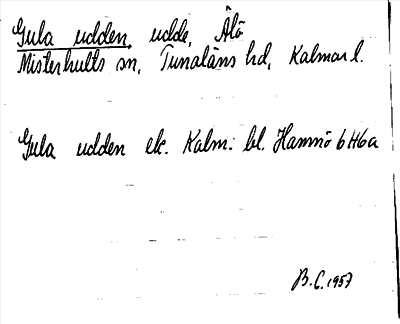 Gula udden, udde, Älö
Misterhults sn, Tunaläns hd, Kalmar l.
Gula udden ek. Kalm. bl. Hamnö 6 H6a
B.C. 1957